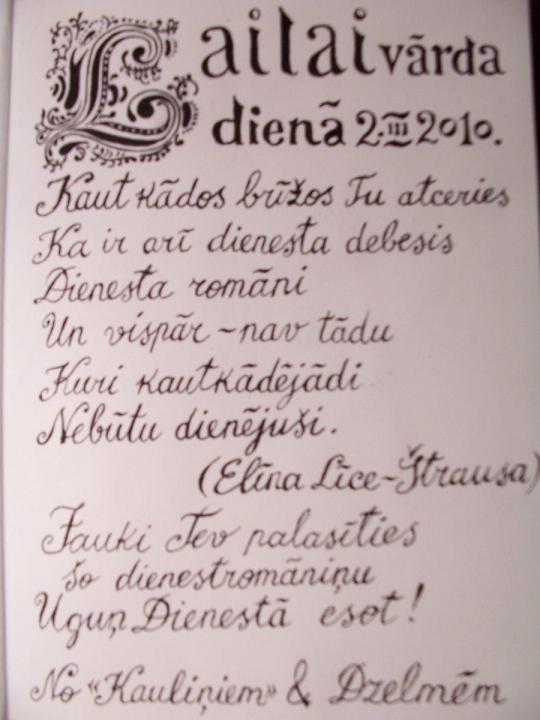 Lailai vārda
dienā 2.III 2010.
Kaut kādos brīžos Tu atceries
Ka ir arī dienesta debesis
Dienesta romāni
Un vispār – nav tādu
Kuri kautkādējādi
Nebūtu dienējuši.
(Elīna Līce-Štrausa)
Jauki Tev palasīties
šo dienestromāniņu
Uguņ Dienestā esot!
No "Kauliņiem" & Dzelmēm